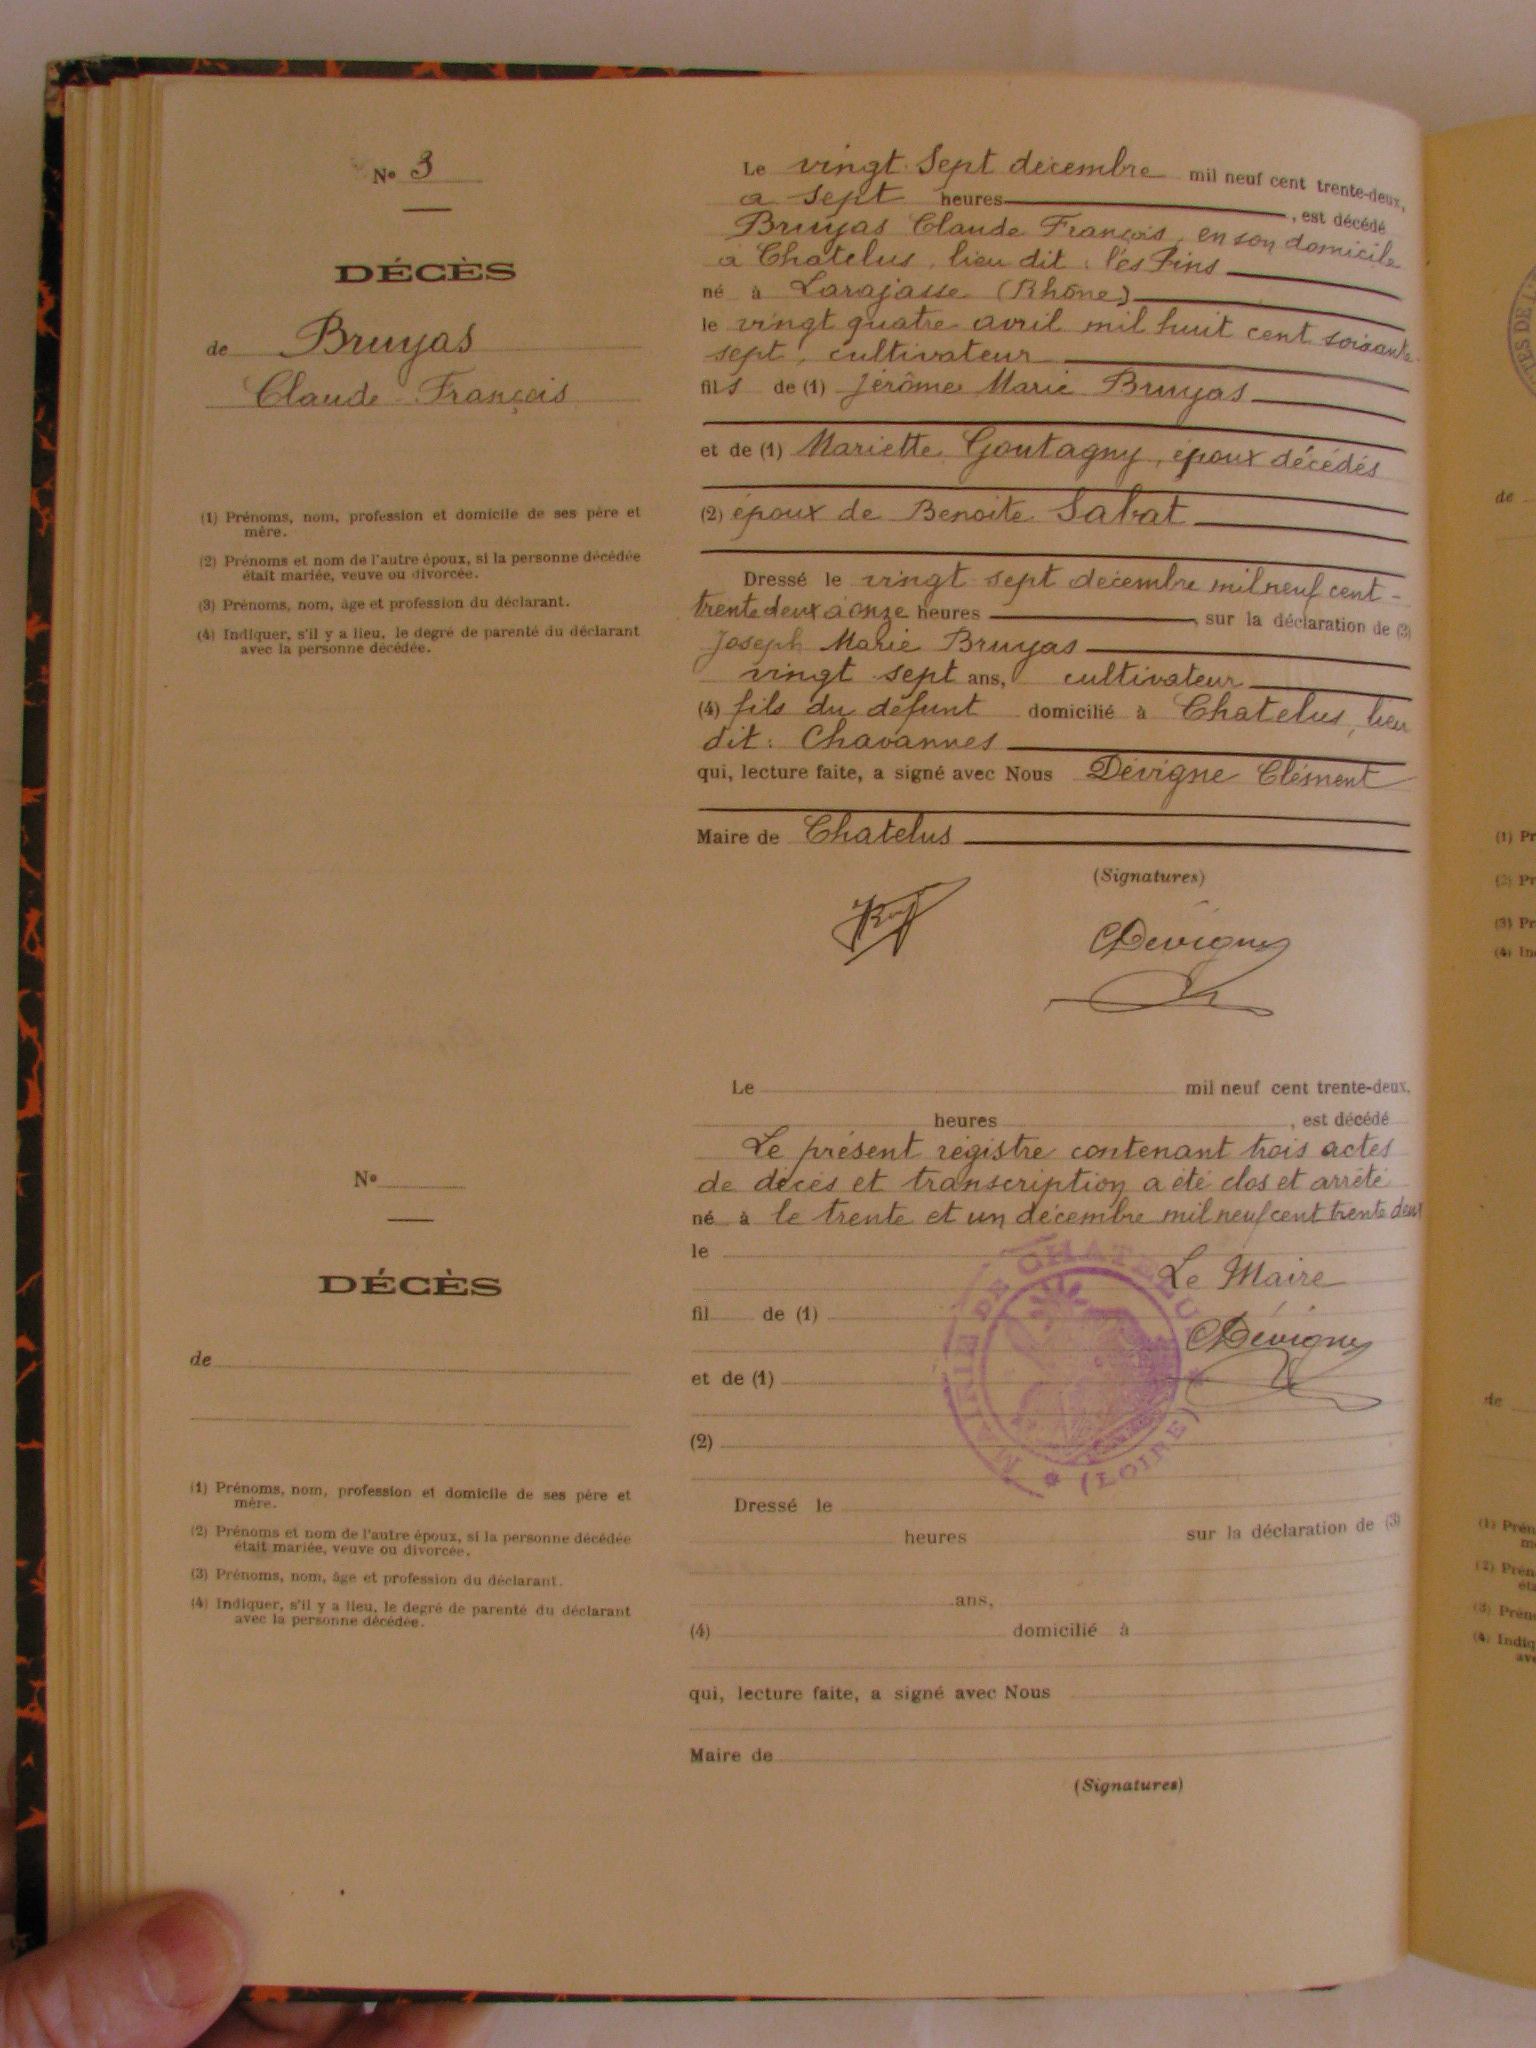 N° 3
DÉCÈS
de Bruyas
Claude François
(1) Prénoms, nom, profession et domicile de ses père et
mère.
(2) Prénoms et nom de l'autre époux, si la personne décédée
était mariée, veuve ou divorcée.
(3) Prénoms, nom, âge et profession du déclarant.
(4) Indiquer, s'il y a lieu, le degré de parenté du déclarant
avec la personne décédée.
Le vingt sept décembre mil neuf cent trente-deux,
à sept heures, est décédé
Bruyas Claude François, en son domicile
à Chatelus, lieu dit : les Pins
né à Larajasse (Rhône)
le vingt quatre avril mil huit cent soixante
sept, cultivateur
fils de (1) Jérôme Marie Bruyas
et de (1) Mariette Goutagny, époux décédés
(2) époux de Benoite Sabat
Dressé le vingt sept décembre mil neuf cent -
trente deux à onze heures, sur la déclaration de (3)
Joseph Marie Bruyas
vingt sept ans, cultivateur
(4) fils du défunt domicilié à Chatelus, lieu
dit : Chavannes
qui, lecture faite, a signé avec Nous Dévigne Clément
Maire de Chatelus
(Signatures)
CDevigne
N°
DÉCÈS
de
(1) Prénoms, nom, profession et domicile de ses père et
mère.
(2) Prénoms et nom de l'autre époux, si la personne décédée
était mariée, veuve ou divorcée.
(3) Prénoms, nom, âge et profession du déclarant.
(4) Indiquer, s'il y a lieu, le degré de parenté du déclarant
avec la personne décédée.
Le mil neuf cent trente-deux,
heures, est décédé
Le présent régistre contenant trois actes
de décès et transcription a été clos et arrêté
né à le trente et un décembre mil neuf cent trente deux
le
Le Maire
fil de (1)
CDevigne
et de (1)
(2)
MAIRIE DE CHATELUS
(LOIRE)
Dressé le
heures sur la déclaration de (3)
ans,
(4) domicilié à
qui, lecture faite, a signé avec Nous
Maire de
(Signatures)
de
(1) Pr
(2) Pr
(3) Pr
(4) In
de
(1) Prén
(2) Prén
(3) Prén
(4) Indiq